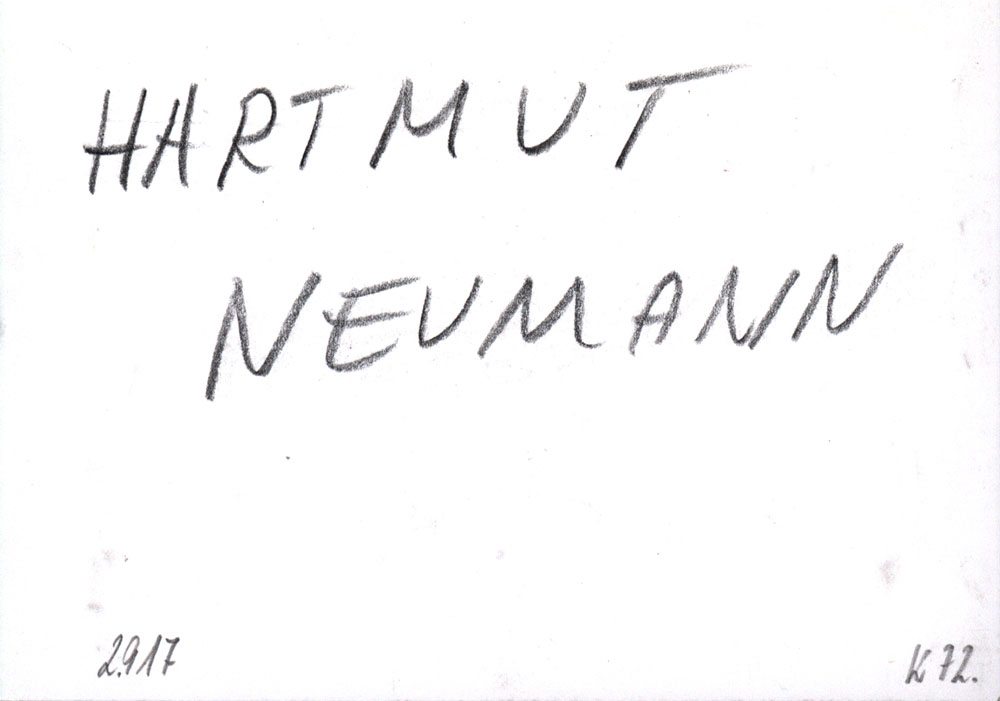 HARTMUT
NEUMANN
2.9.17
K 72.